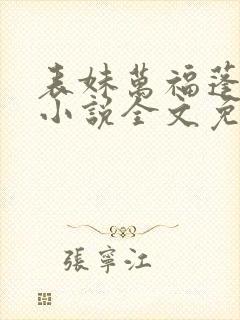 表妹萬福蓬
小說全文免
張寧江